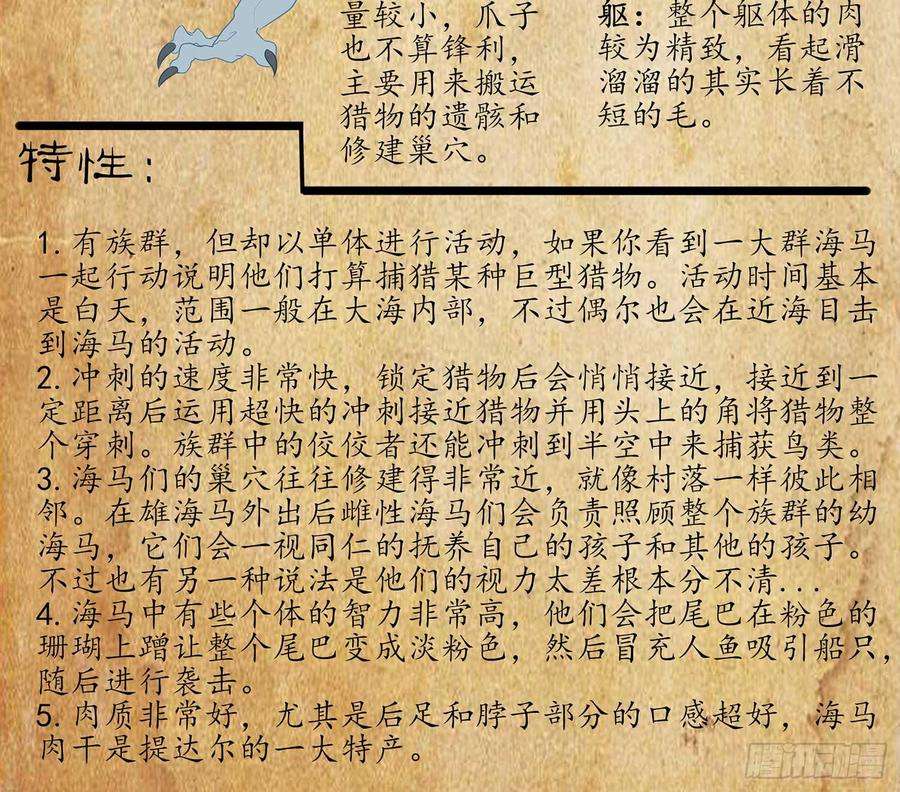 量较小，爪子
也不算锋利，
主要用来搬运
猎物的遗骸和
修建巢穴。
躯：整个躯体的肉
较为精致，看起滑
溜溜的其实长着不
短的毛。
特性：
1. 有族群，但却以单体进行活动，如果你看到一大群海马
一起行动说明他们打算捕猎某种巨型猎物。活动时间基本
是白天，范围一般在大海内部，不过偶尔也会在近海目击
到海马的活动。
2. 冲刺的速度非常快，锁定猎物后会悄悄接近，接近到一
定距离后运用超快的冲刺接近猎物并用头上的角将猎物整
个穿刺。族群中的佼佼者还能冲刺到半空中来捕获鸟类。
3. 海马们的巢穴往往修建得非常近，就像村落一样彼此相
邻。在雄海马外出后雌性海马们会负责照顾整个族群的幼
海马，它们会一视同仁的抚养自己的孩子和其他的孩子。
不过也有另一种说法是他们的视力太差根本分不清...
4. 海马中有些个体的智力非常高，他们会把尾巴在粉色的
珊瑚上蹭让整个尾巴变成淡粉色，然后冒充人鱼吸引船只，
随后进行袭击。
5. 肉质非常好，尤其是后足和脖子部分的口感超好，海马
肉干是提达尔的一大特产。
腾讯动漫